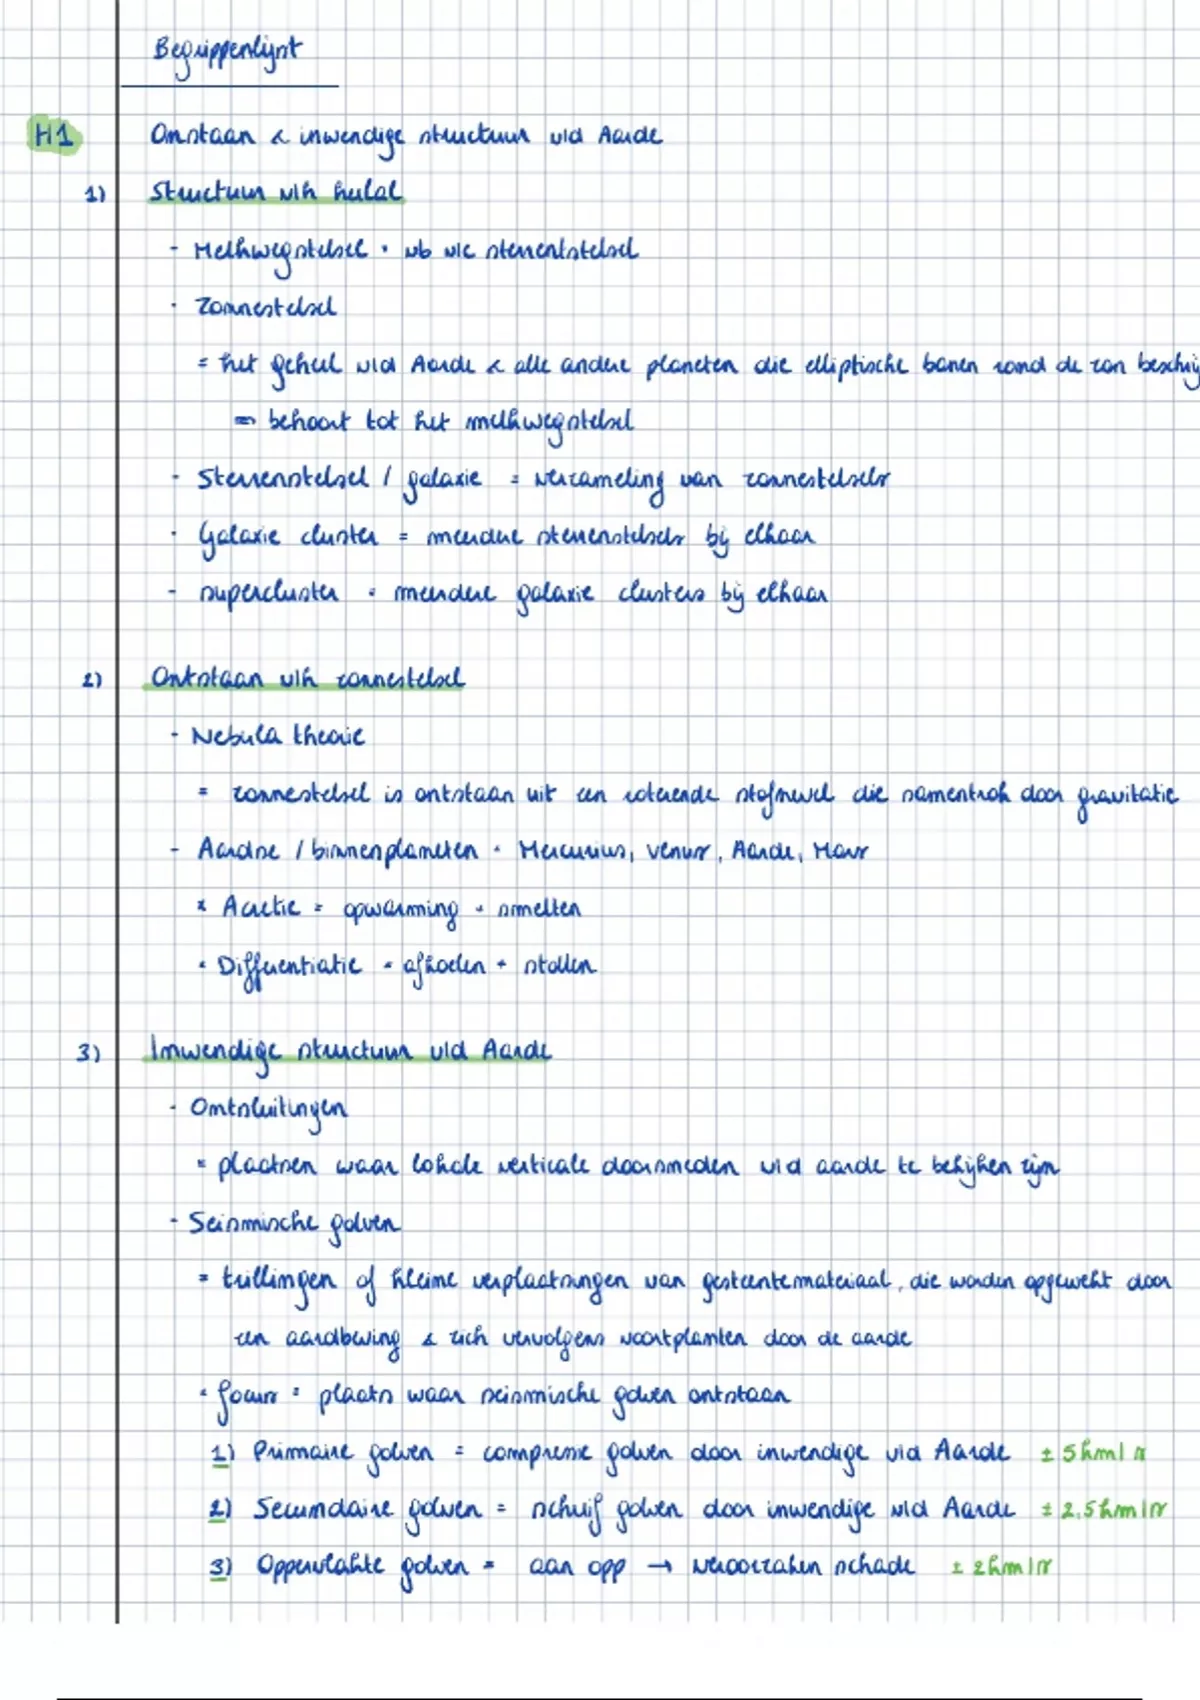 Begrippenlijst
H1 Onstaan & inwendige structuur v/d Aarde
1) Structuur v/h heelal
- Melkwegstelsel = vb v/e sterrenstelsel
- Zonnestelsel
= het geheel v/d Aarde & alle andere planeten die elliptische banen rond de zon beschrij
⇒ behoort tot het melkwegstelsel
- Sterrenstelsel / galaxie = verzameling van zonnestelsels
- Galaxie cluster = meerdere sterrenstelsels bij elkaar
- supercluster = meerdere galaxie clusters bij elkaar
2) Ontstaan v/h zonnestelsel
- Nebula theorie
= zonnestelsel is ontstaan uit een roterende stofnevel die samentrok door gravitatie
- Aardse / binnenplaneten = Mercurius, Venus, Aarde, Mars
* Acretie = opwarming + smelten
* Differentiatie = afkoelen + stollen
3) Inwendige structuur v/d Aarde
- Ontsluitingen
= plaatsen waar lokale verticale doorsneden v/d aarde te bekijken zijn
- Seismische golven
= trillingen of kleine verplaatsingen van gesteentemateriaal, die worden opgewekt door
een aardbeving & zich vervolgens voortplanten door de aarde
* focus = plaats waar seismische golven ontstaan
1) Primaire golven = compressie golven door inwendige v/d Aarde ± 5km/s
2) Secundaire golven = schuif golven door inwendige v/d Aarde ± 2,5km/s
3) Oppervlakte golven = aan opp → veroorzaken schade ± 2km/s